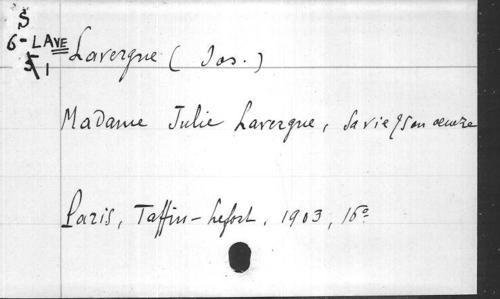 S
6-LAVE
5 1
Lavergne (Jos.)
Madame Julie Lavergne, sa vie & son oeuvre
Paris, Taffin-Lefort, 1903, 16°